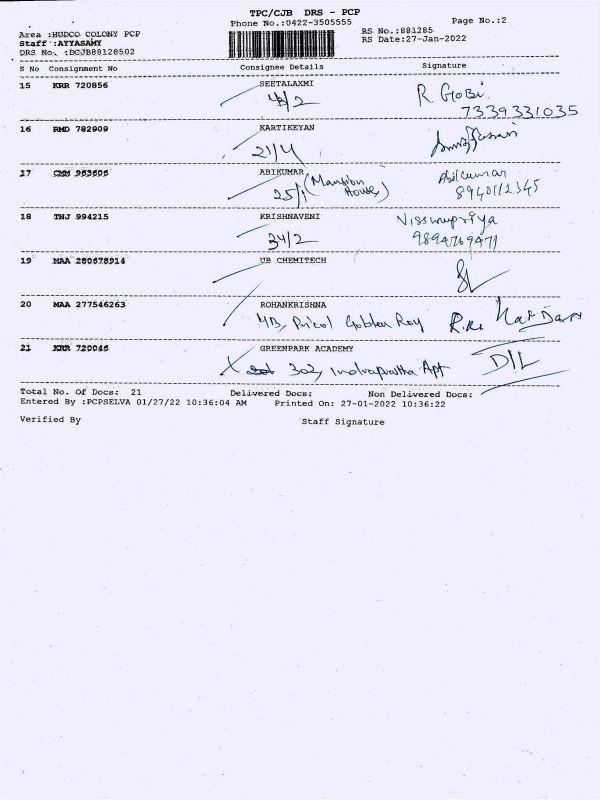 TPC/CJB DRS - PCP
Phone No.:0422-3505555
Page No.:2
Area :HUDCO COLONY PCP
RS No.:881285
Staff :AYYASAMY
RS Date:27-Jan-2022
DRS No. :DCJB88128502
S No Consignment No Consignee Details Signature
15 KRR 720856 SEETALAXMI
R Gobi
7339331035
16 RMD 782909 KARTIKEYAN
21/4
17 963606 ABIKUMAR
25/1 (Mansion House)
Abikumar
8940112345
18 TNJ 994215 KRISHNAVENI
34/2
Visswapriya
9894769471
19 MAA 280678914 UB CHEMITECH
20 MAA 277546263 ROHANKRISHNA
4B, Pricol
21 KRR 720046 GREENPARK ACADEMY
302, Indraprastha Apt
D/L
Total No. Of Docs: 21 Delivered Docs: Non Delivered Docs:
Entered By :PCPSELVA 01/27/22 10:36:04 AM Printed On: 27-01-2022 10:36:22
Verified By Staff Signature